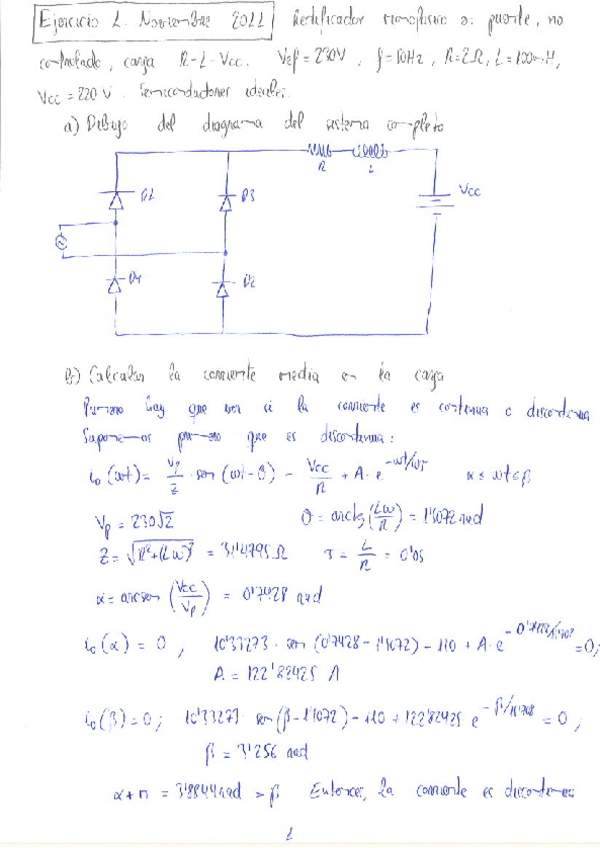 Ejercicio 1. Noviembre 2011 Rectificador monofásico en puente, no
controlado, carga R-L-Vcc. Vef = 230V, f = 50Hz, R = 2Ω, L = 100mH,
Vcc = 220 V. Semiconductores ideales.
a) Dibujo del diagrama del sistema completo
R L
D1 D3 Vcc
D4 D2
b) Calcular la corriente media en la carga
Primero hay que ver si la corriente es continua o discontinua
Suponemos primero que es discontinua:
io(wt) = Vp/Z · sen(wt-θ) - Vcc/R + A·e^-wt/wτ α ≤ wt ≤ β
Vp = 230√2 θ = arctg(Lw/R) = 1'5072 rad
Z = √(R²+(Lw)²) = 31'4795 Ω τ = L/R = 0'05
α = arcsen(Vcc/Vp) = 0'7428 rad
io(α) = 0, 10'33273 · sen(0'7428 - 1'5072) - 110 + A·e^-0'7428/15'708 = 0;
A = 122'82425 A
io(β) = 0; 10'33273 · sen(β - 1'5072) - 110 + 122'82425 e^-β/15'708 = 0;
β = 3'256 rad
α + π = 3'8844 rad > β. Entonces, la corriente es discontinua
1